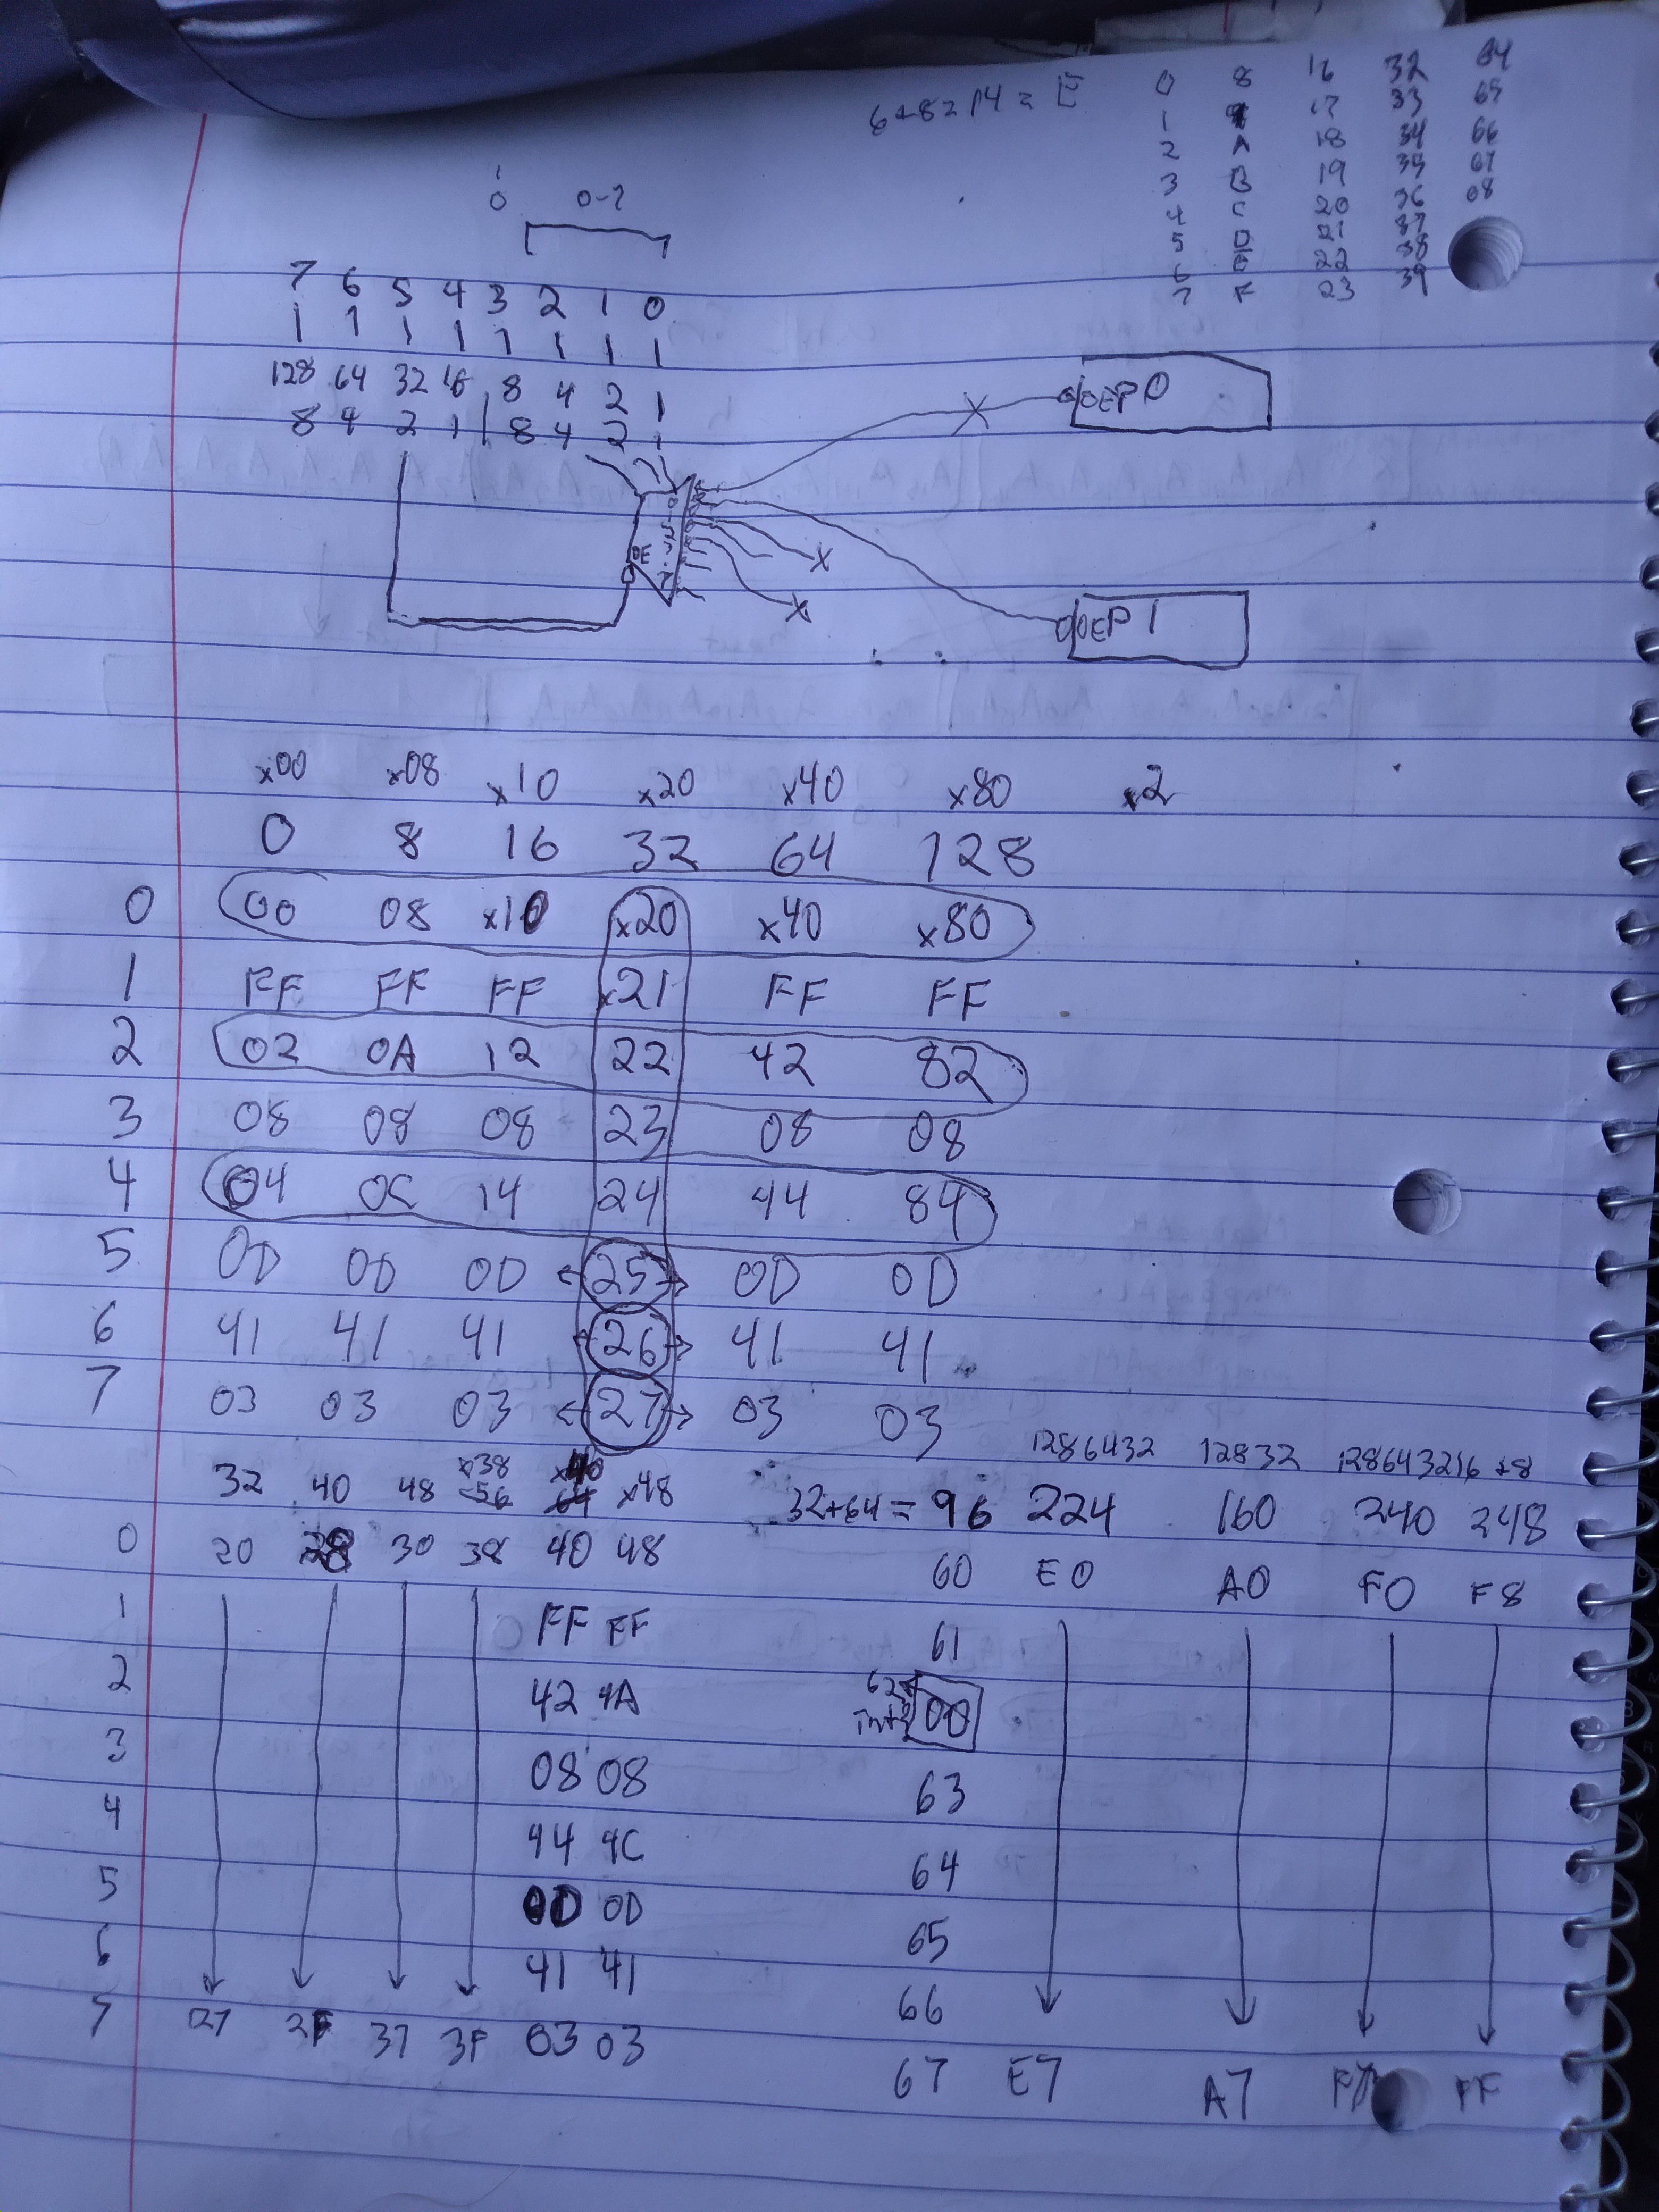 6+8=14=E
0 8 16 32 64
1 17 33 65
2 A 18 34 66
3 B 19 35 67
4 C 20 36 68
5 D 21 37
6 E 22 38
7 F 23 39
0 0-7
7 6 5 4 3 2 1 0
1 1 1 1 1 1 1 1
128 64 32 16 8 4 2 1
8 4 2 1 8 4 2 1
OEP0
OE
OEP1
x00 x08 x10 x20 x40 x80 x2
0 8 16 32 64 128
0 00 08 x10 x20 x40 x80
1 FF FF FF x21 FF FF
2 02 0A 12 22 42 82
3 08 08 08 23 08 08
4 04 0C 14 24 44 84
5 0D 0D 0D 25 0D 0D
6 41 41 41 26 41 41
7 03 03 03 27 03 03
x38 x40 1286432 12832 128643216 +8
32 40 48 56 64 x48 32+64=96 224 160 240 248
0 20 28 30 38 40 48 60 E0 A0 F0 F8
1 FF FF 61
2 42 4A 62 00
3 08 08 63
4 44 4C 64
5 0D 0D 65
6 41 41 66
7 27 2F 37 3F 03 03 67 E7 A7 F7 FF